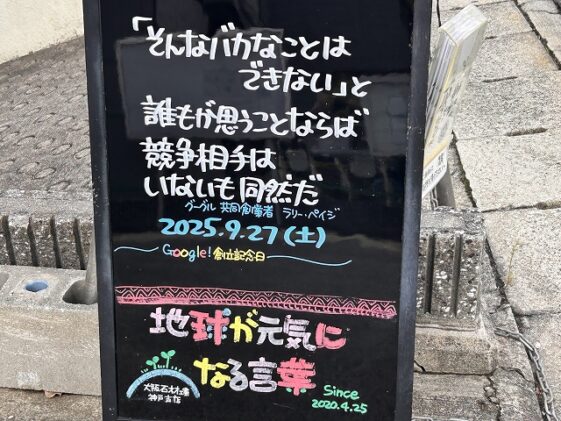 「そんなバカなことは
できない」と
誰もが思うことならば
競争相手は
いないも同然だ
グーグル 共同創業者 ラリー・ペイジ
2025.9.27(土)
Google! 創立記念日
地球が元気に
なる言葉
神戸支店
Since
2020.4.25